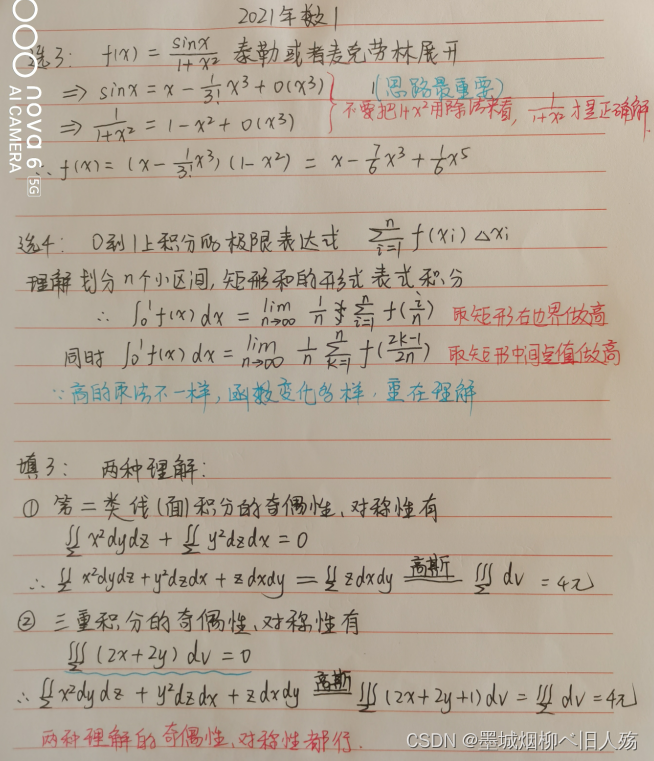 2021年数1
选3: f(x) = sinx/(1+x²) 泰勒或者麦克劳林展开
⇒ sinx = x - 1/3! x³ + o(x³) (思路最重要)
不要把1+x²用除法来看, 1/(1+x²) 才是正确解.
⇒ 1/(1+x²) = 1 - x² + o(x³)
∴ f(x) = (x - 1/3! x³)(1-x²) = x - 7/6 x³ + 1/6 x⁵
选4: 0到1上积分的极限表达式 ∑_{i=1}^{n} f(xi)△xi
理解划分n个小区间,矩形和的形式表式积分
∴ ∫₀¹ f(x) dx = lim_{n→∞} 1/n ∑_{i=1}^{n} f(i/n) 取矩形右边界做高
同时 ∫₀¹ f(x) dx = lim_{n→∞} 1/n ∑_{k=1}^{n} f((2k-1)/2n) 取矩形中间点值做高
∵高的取法不一样,函数变化多样,重在理解
填3: 两种理解:
① 第二类线(面)积分的奇偶性、对称性有
∬_Σ x²dydz + ∬_Σ y²dzdx = 0
∴ ∬_Σ x²dydz + y²dzdx + zdxdy = ∬_Σ zdxdy 高斯 ∭_Σ dv = 4π
② 三重积分的奇偶性、对称性有
∭_Σ (2x+2y) dv = 0
∴ ∬_Σ x²dydz + y²dzdx + zdxdy 高斯 ∭_Σ (2x+2y+1)dv = ∭_Σ dv = 4π
两种理解的奇偶性、对称性都行.
nova 6 5G
AI CAMERA
CSDN @墨城烟柳べ旧人殇